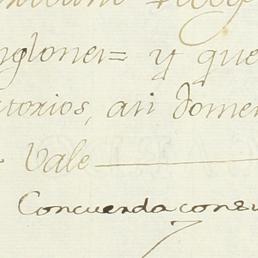 nglones= y que
torios, asi domen
Vale
Concuerda consu